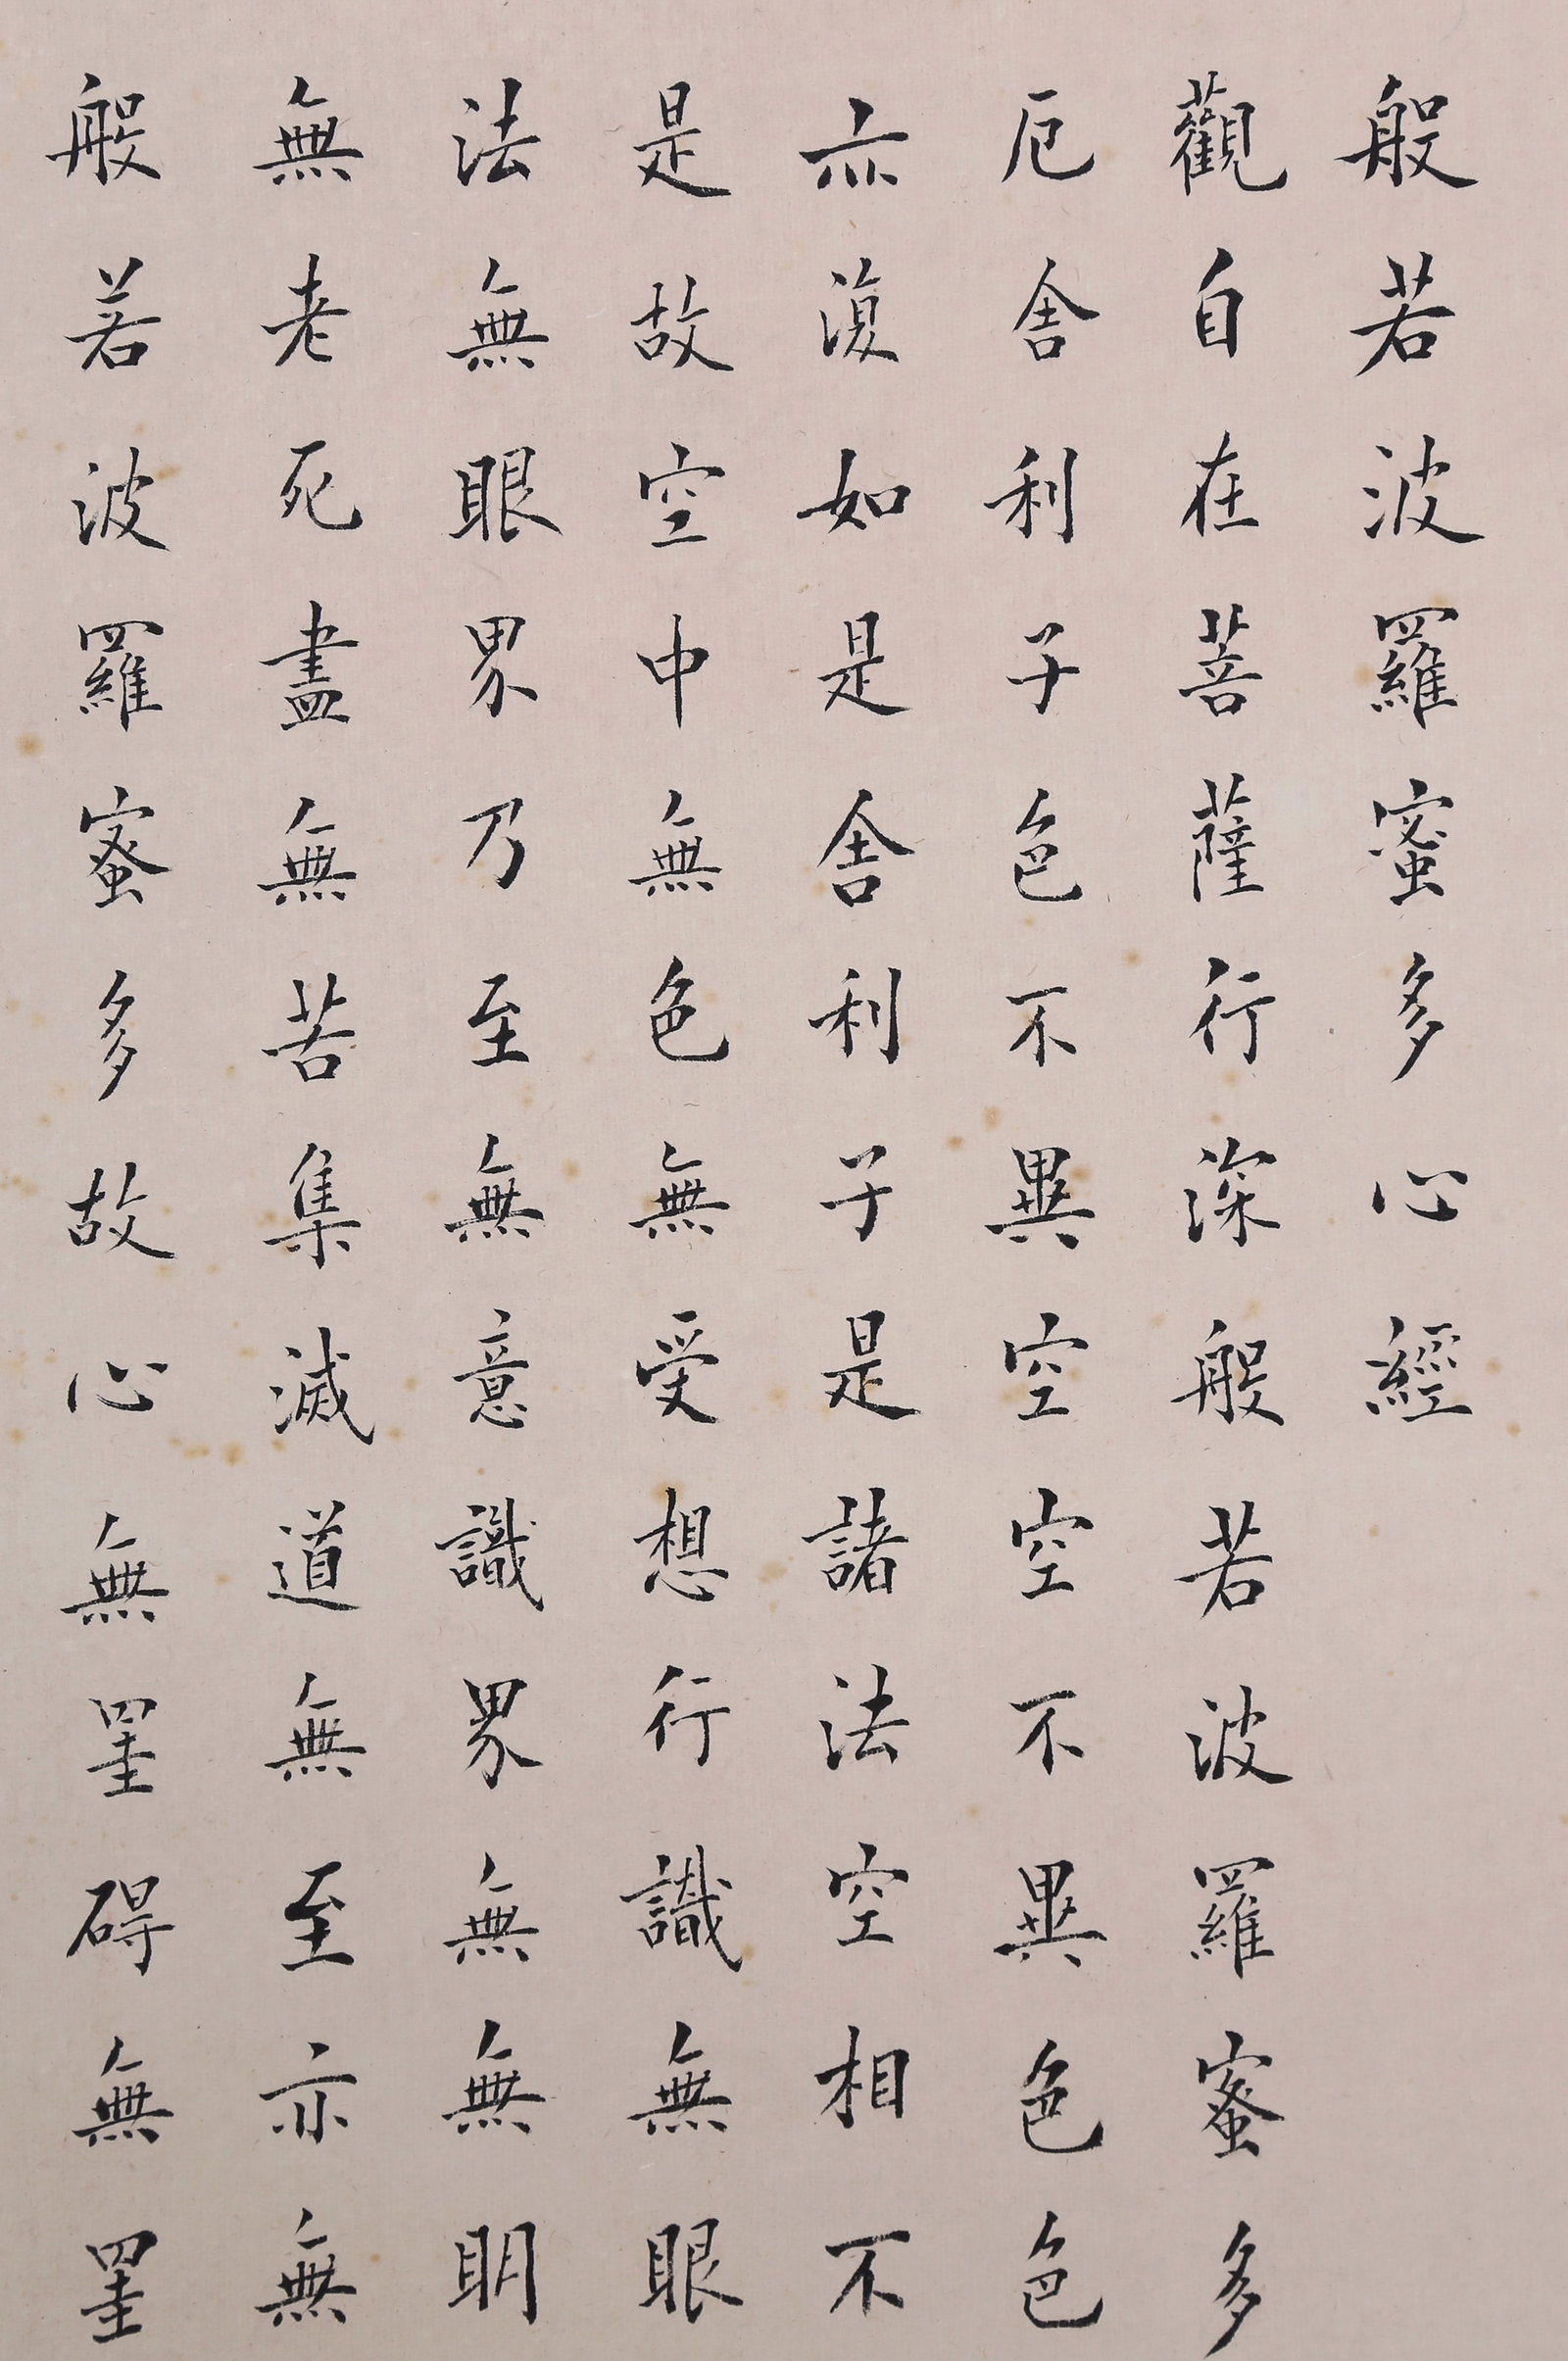 般若波羅蜜多心經
觀自在菩薩行深般若波羅蜜多
厄舍利子色不異空空不異色色
亦復如是舍利子是諸法空相不
是故空中無色無受想行識無眼
法無眼界乃至無意識界無無明
無老死盡無苦集滅道無至亦無
般若波羅蜜多故心無罣碍無罣